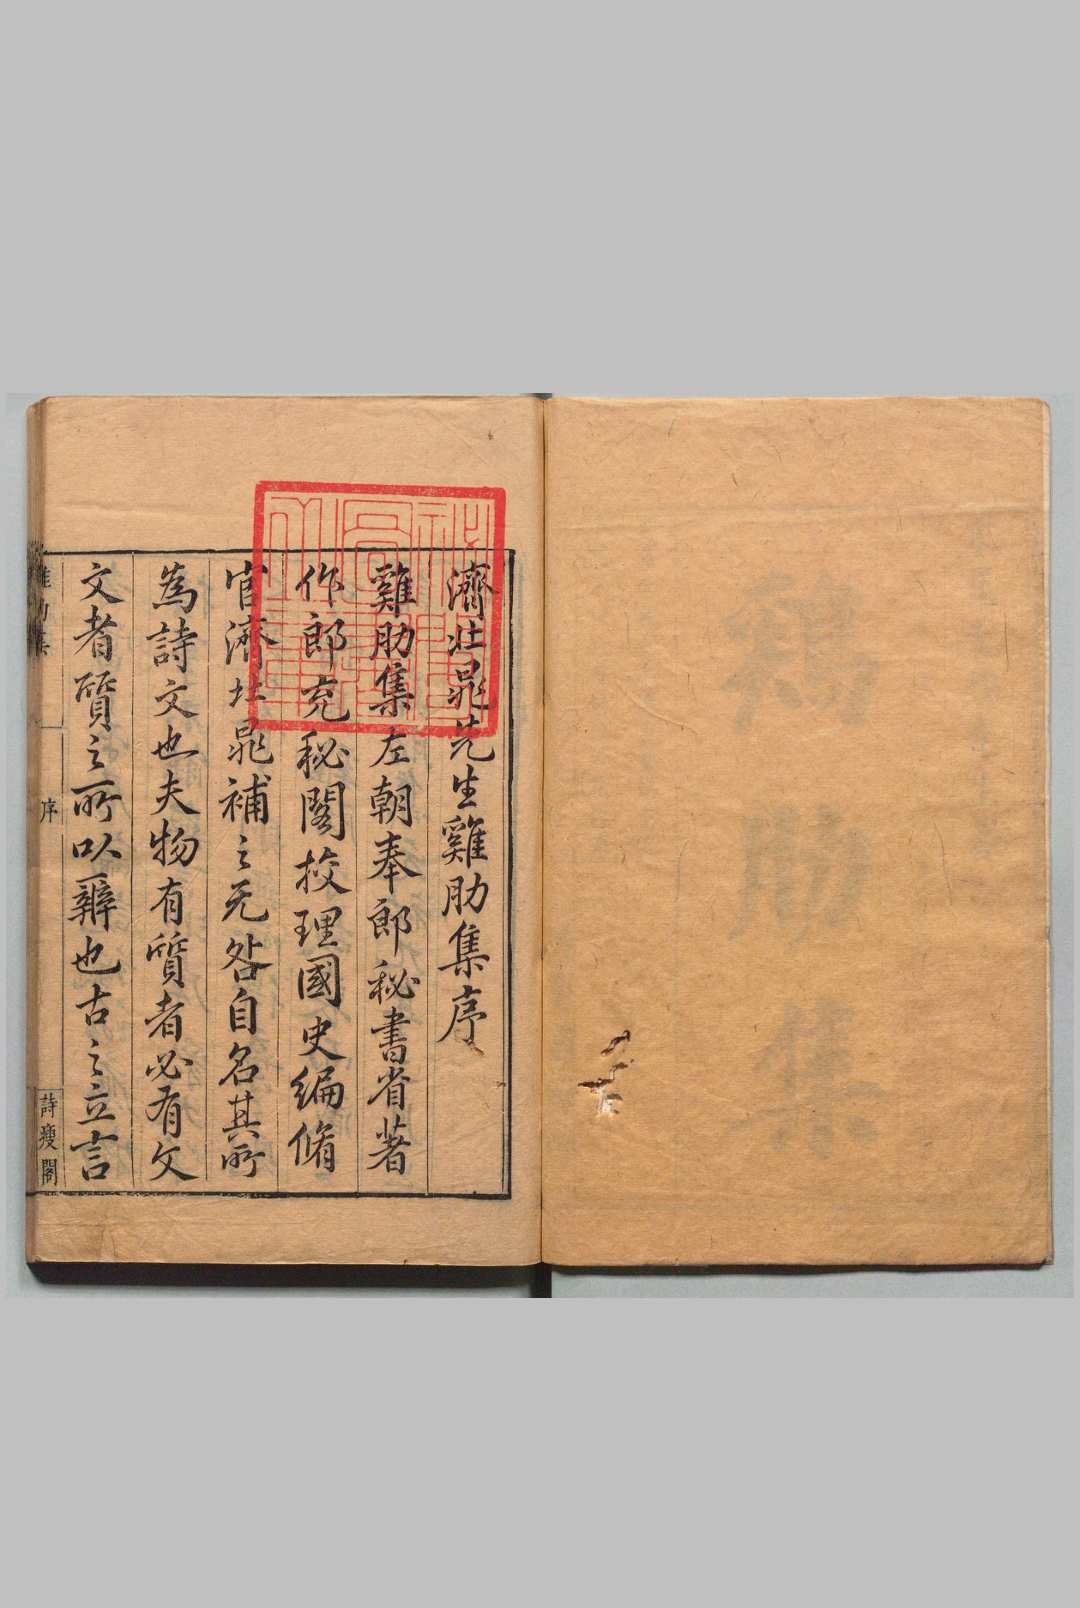 濟北晁先生雞肋集序
雞肋集左朝奉郎秘書省著
作郎充秘閣挍理國史編脩
官濟北晁補之无咎自名其所
為詩文也夫物有質者必有文
文者質之所以辨也古之立言
雞肋集
序
詩瘦閣